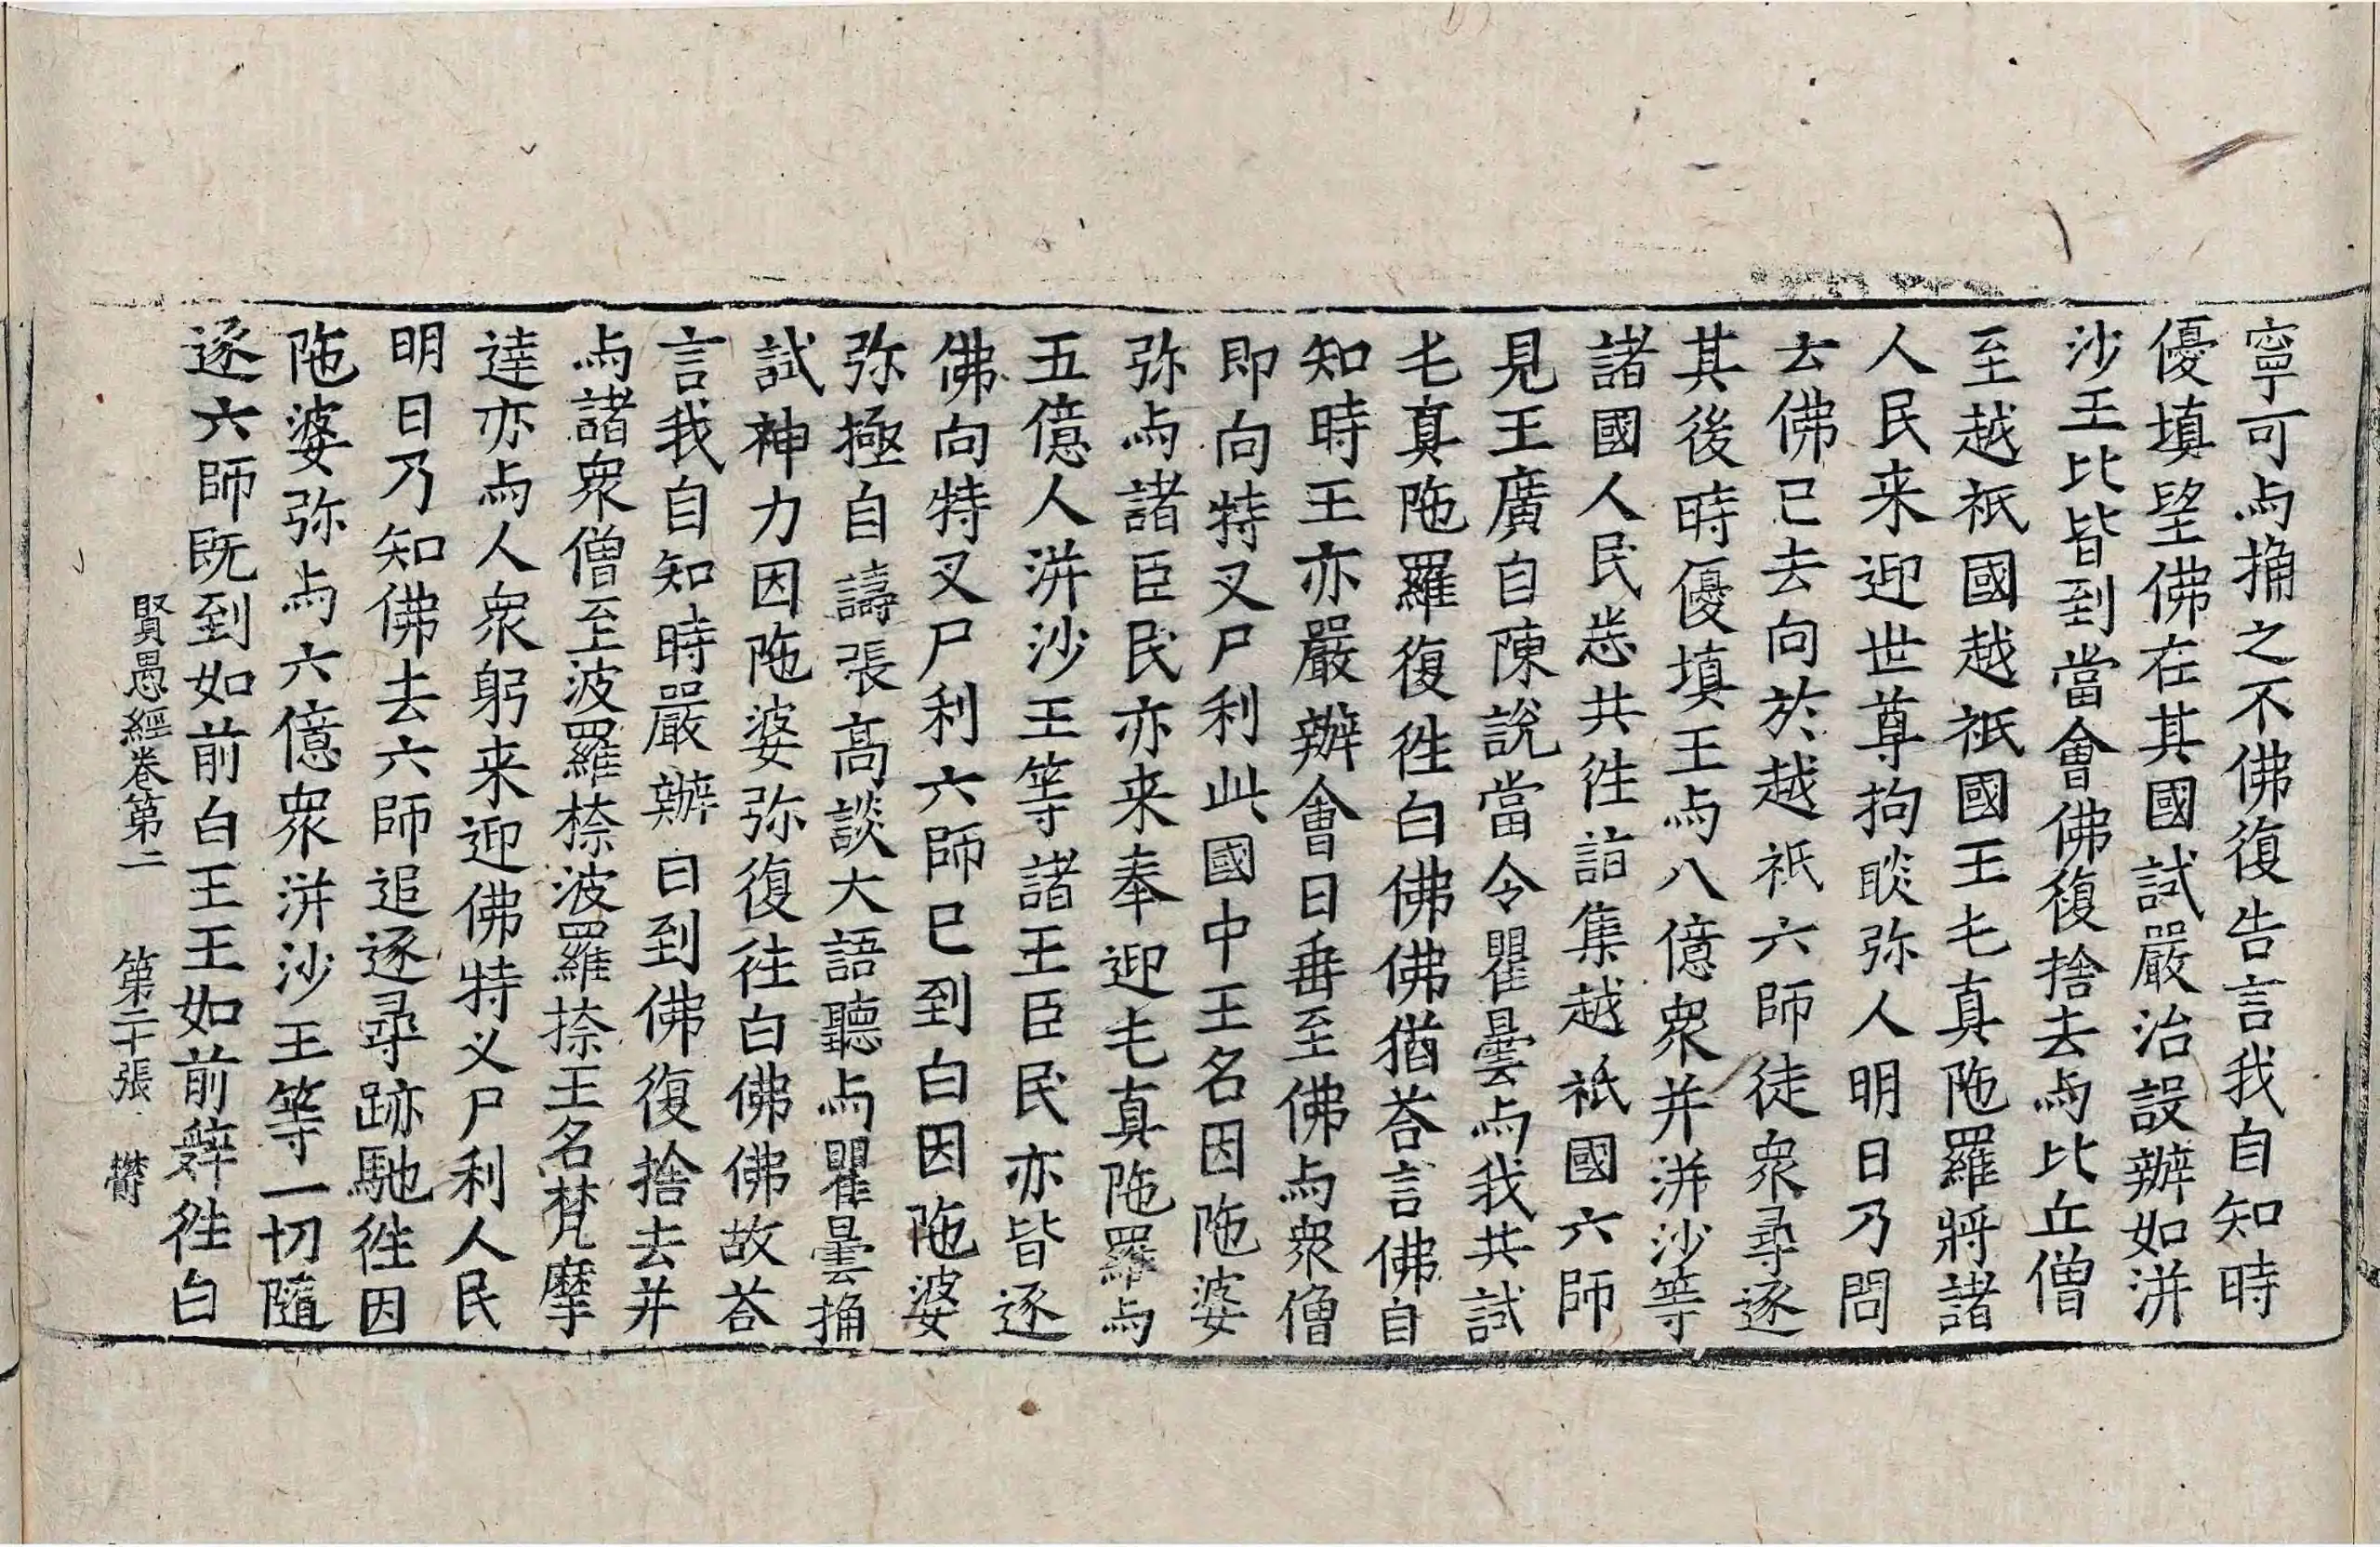 寧可与捔之不佛復告言我自知時
優填望佛在其國試嚴治設辦如洴
沙王比皆到當會佛復捨去与比丘僧
至越祇國越祇國王乇真陁羅將諸
人民来迎世尊拘睒弥人明日乃問
去佛已去向於越祇六師徒衆尋逐
其後時優填王与八億衆并洴沙等
諸國人民悉共徃詣集越祇國六師
見王廣自陳說當令瞿曇与我共試
乇真陁羅復徃白佛佛猶荅言佛自
知時王亦嚴辦會日垂至佛与衆僧
即向特叉尸利此國中王名因陁婆
弥与諸臣民亦来奉迎乇真陁羅与
五億人洴沙王等諸王臣民亦皆逐
佛向特叉尸利六師已到白因陁婆
弥極自譸張高談大語聽与瞿曇捔
試神力因陁婆弥復往白佛佛故荅
言我自知時嚴辦日到佛復捨去并
与諸衆僧至波羅㮈波羅㮈王名梵摩
達亦与人衆躬来迎佛特叉尸利人民
明日乃知佛去六師追逐尋跡馳徃因
陁婆弥与六億衆洴沙王等一切隨
逐六師既到如前白王王如前辤徃白
賢愚經卷第二　第二十張　欎